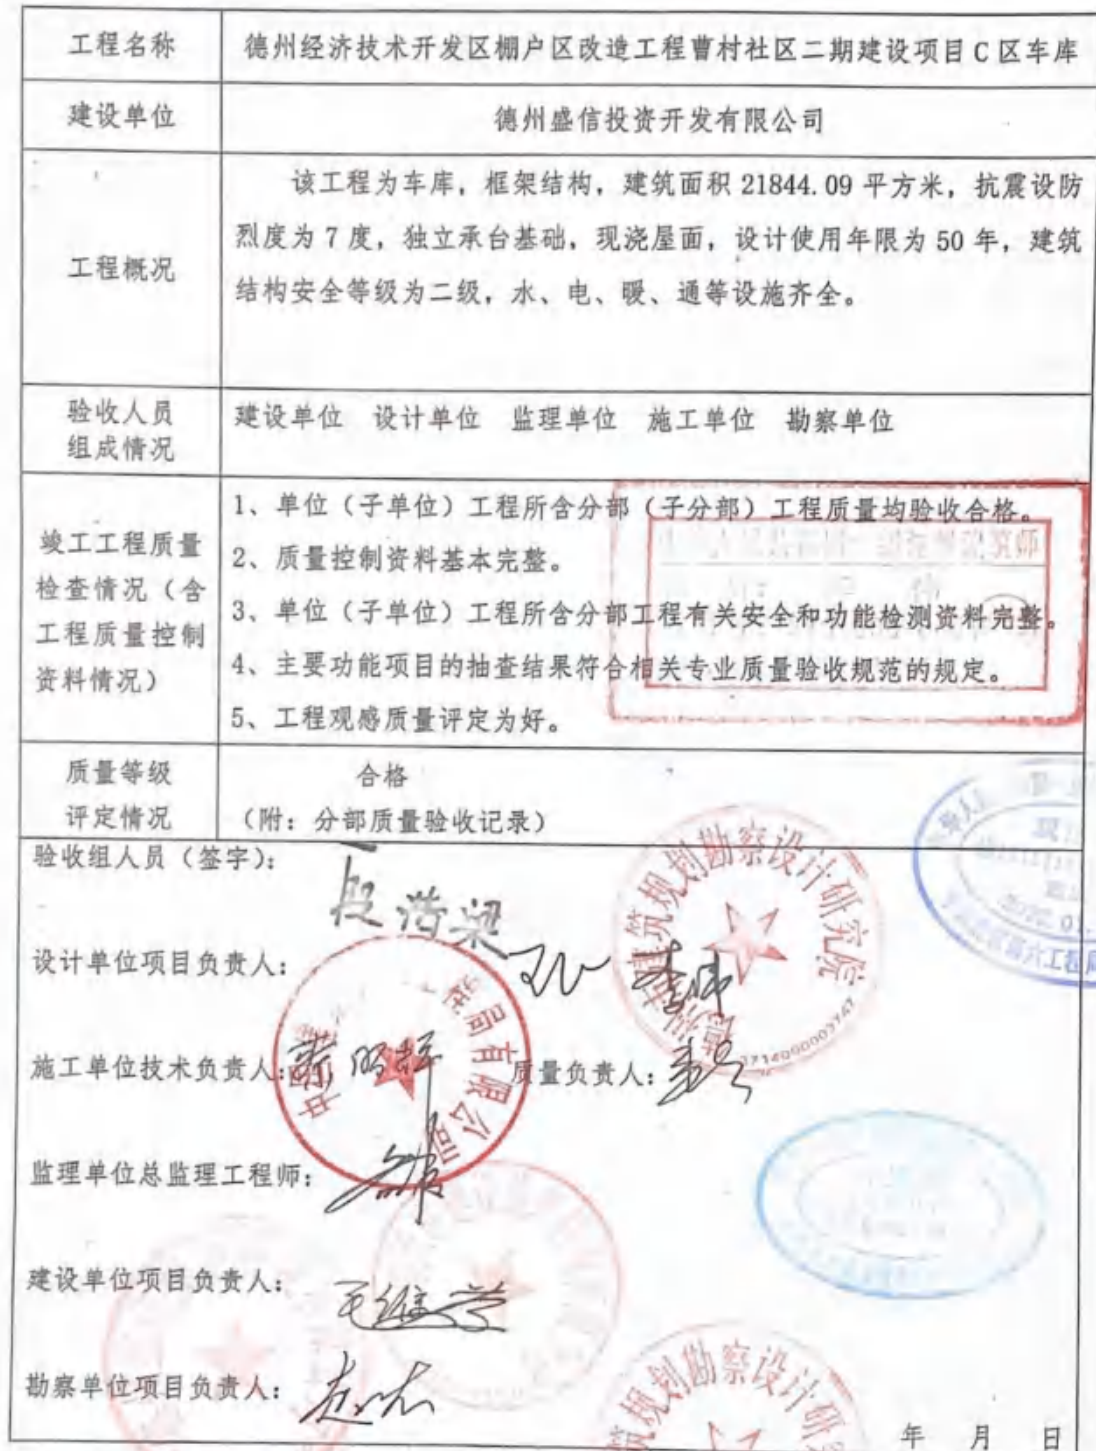 工程名称
德州经济技术开发区棚户区改造工程曹村社区二期建设项目C区车库
建设单位
德州盛信投资开发有限公司
工程概况
该工程为车库，框架结构，建筑面积 21844.09 平方米，抗震设防
烈度为 7 度，独立承台基础，现浇屋面，设计使用年限为 50 年，建筑
结构安全等级为二级，水、电、暖、通等设施齐全。
验收人员
组成情况
建设单位 设计单位 监理单位 施工单位 勘察单位
竣工工程质量
检查情况（含
工程质量控制
资料情况）
1、单位（子单位）工程所含分部（子分部）工程质量均验收合格。
2、质量控制资料基本完整。
3、单位（子单位）工程所含分部工程有关安全和功能检测资料完整。
4、主要功能项目的抽查结果符合相关专业质量验收规范的规定。
5、工程观感质量评定为好。
质量等级
评定情况
合格
（附：分部质量验收记录）
验收组人员（签字）：
段浩梁
设计单位项目负责人：
建筑规划勘察设计研究院
施工单位技术负责人：
局有限公司
质量负责人：
监理单位总监理工程师：
建设单位项目负责人：
王继学
勘察单位项目负责人：
筑规划勘察设计研
年 月 日